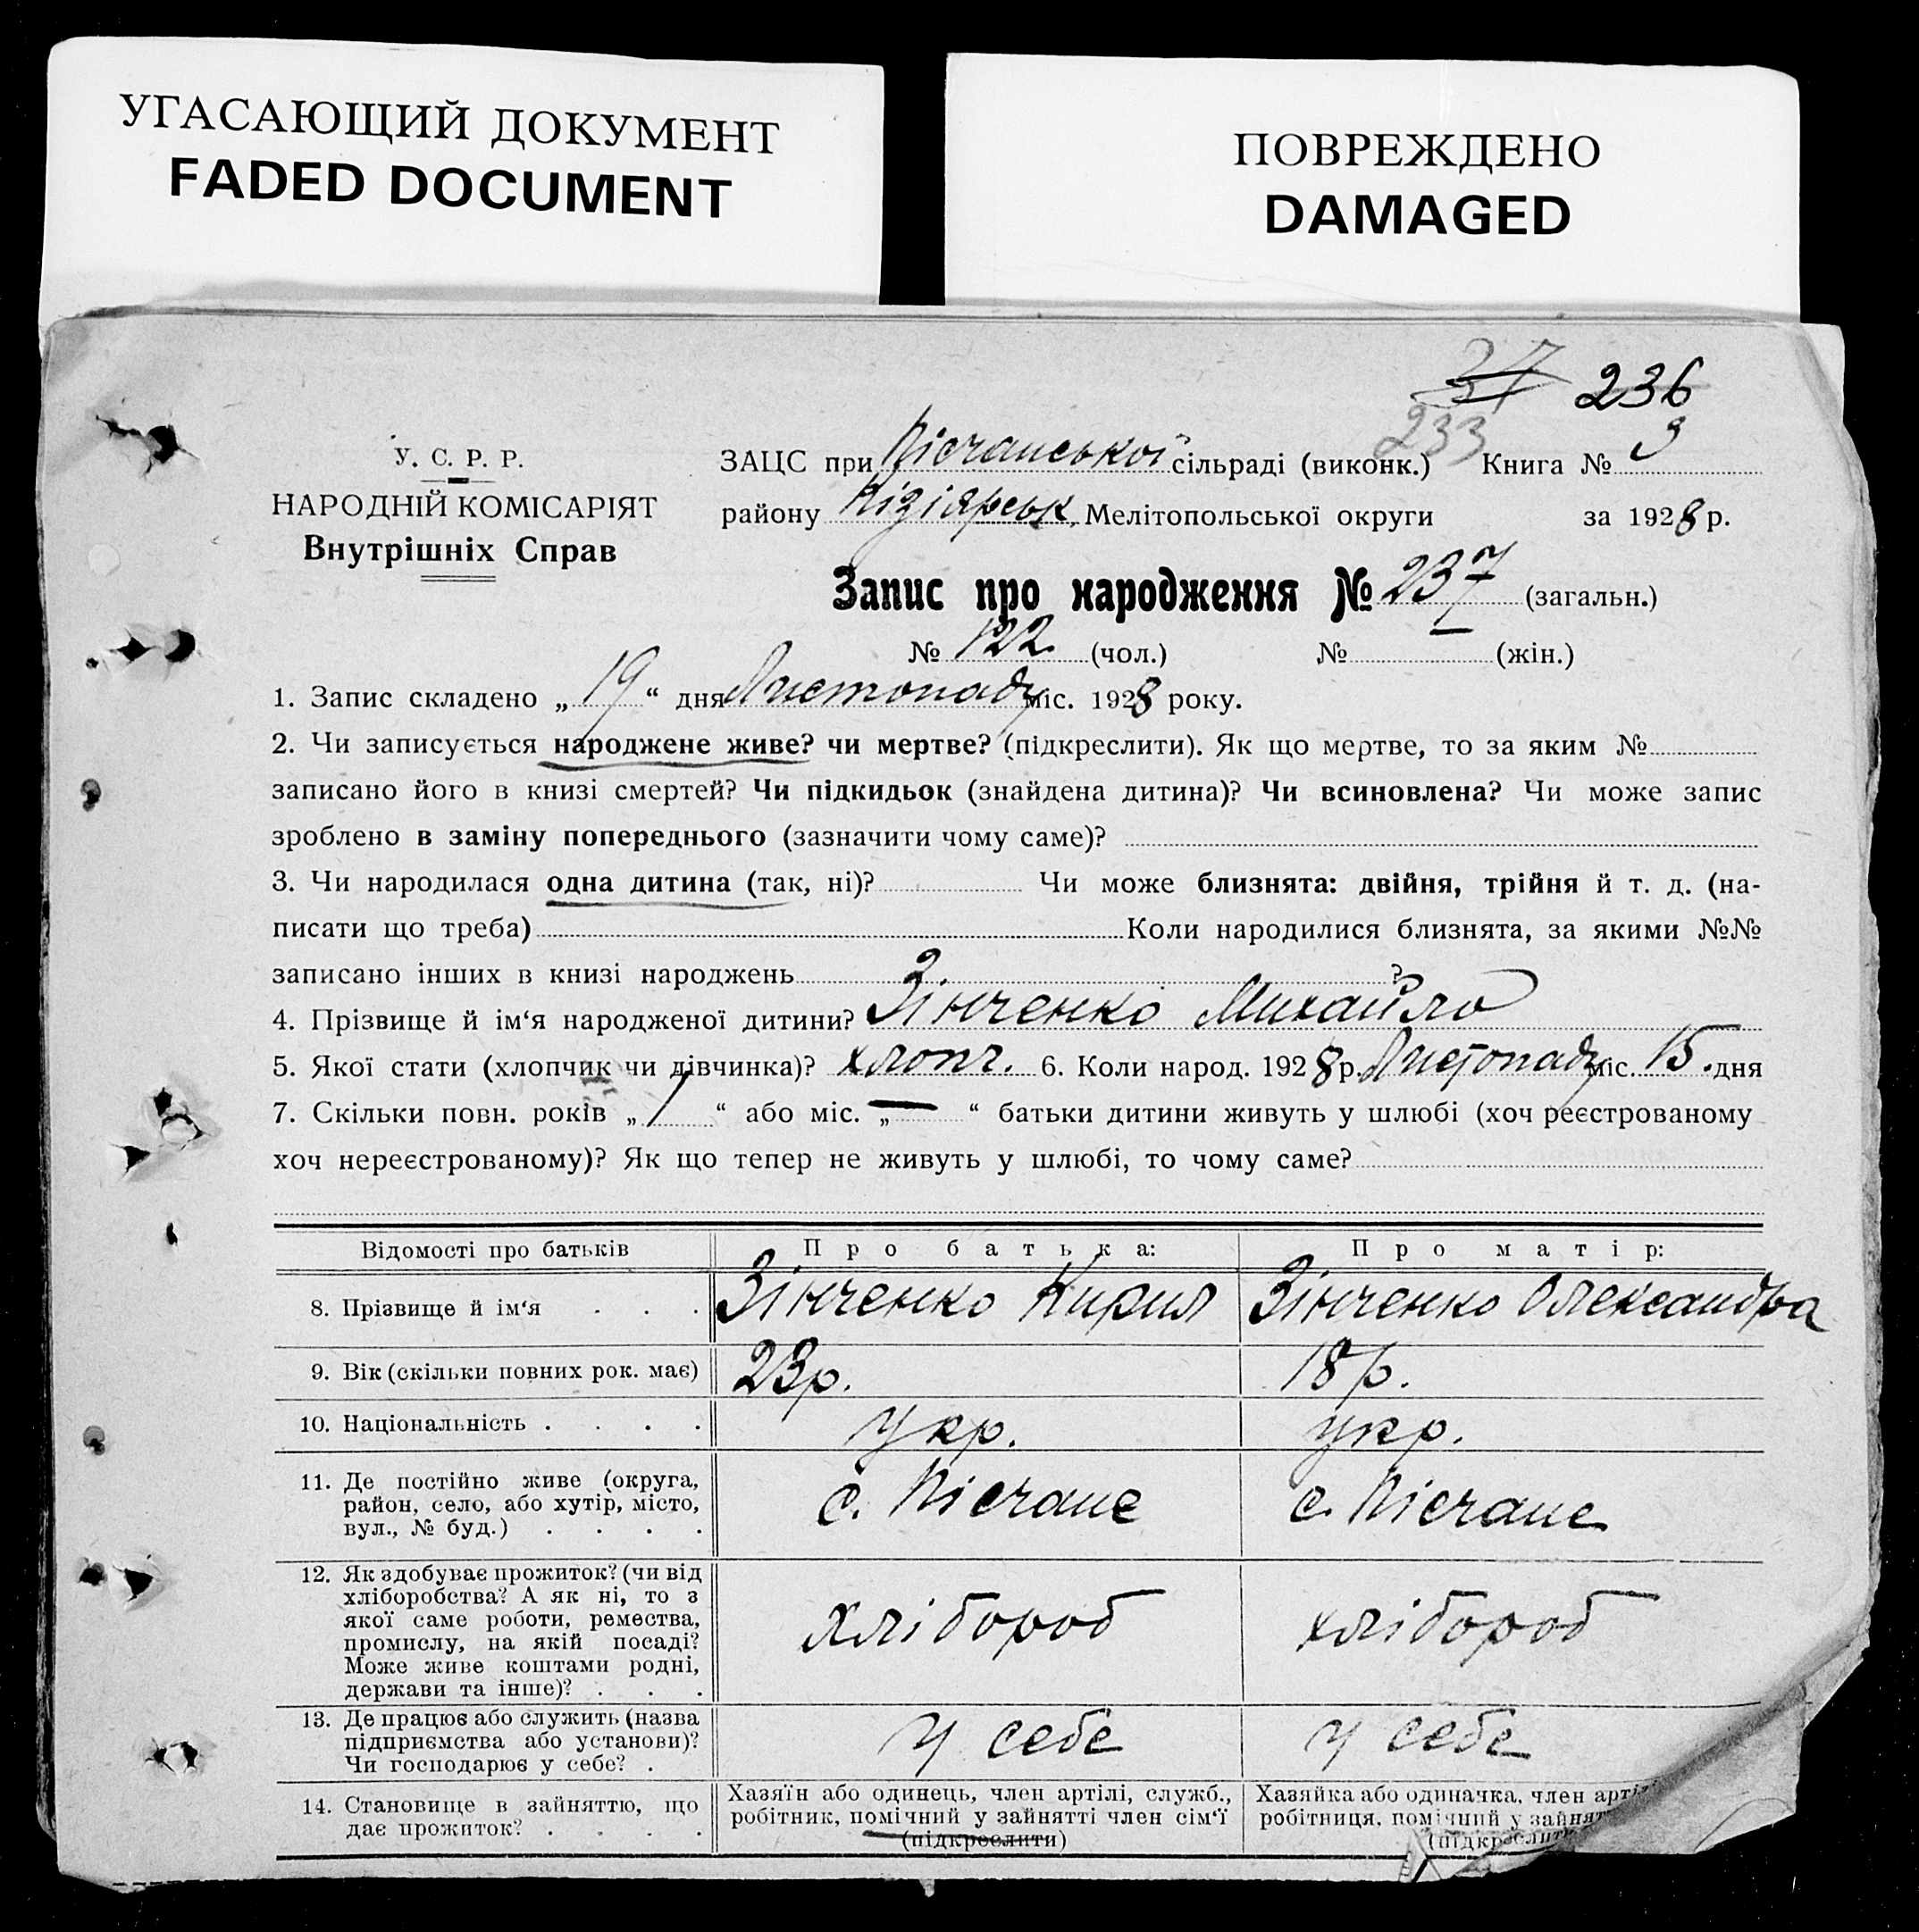 УГАСАЮЩИЙ ДОКУМЕНТ
FADED DOCUMENT
ПОВРЕЖДЕНО
DAMAGED
37 236
233
У. С. Р. Р.
НАРОДНІЙ КОМІСАРІЯТ
Внутрішніх Справ
ЗАЦС при Пісчанської сільраді (виконк.) Книга № 3
району Кізіярськ. Мелітопольської округи за 1928 р.
Запис про народження № 237 (загальн.)
№ 122 (чол.) № — (жін.)
1. Запис складено „ 19 “ дня Листопаду міс. 1928 року.
2. Чи записується народжене живе? чи мертве? (підкреслити). Як що мертве, то за яким №
записано його в книзі смертей? Чи підкидьок (знайдена дитина)? Чи всиновлена? Чи може запис
зроблено в заміну попереднього (зазначити чому саме)?
3. Чи народилася одна дитина (так, ні)? Чи може близнята: двійня, трійня й т. д. (на-
писати що треба) Коли народилися близнята, за якими №№
записано інших в книзі народжень ?
4. Прізвище й ім‘я народженої дитини? Зінченко Михайло
5. Якої стати (хлопчик чи дівчинка)? хлопч. 6. Коли народ. 1928 р. Листопаду міс. 15. дня
7. Скільки повн. років „ 1 “ або міс. „ — “ батьки дитини живуть у шлюбі (хоч реєстрованому
хоч нереєстрованому)? Як що тепер не живуть у шлюбі, то чому саме?
Відомості про батьків Про батька: Про матір:
8. Прізвище й ім‘я . . . Зінченко Кирил Зінченко Олександра
9. Вік (скільки повних рок. має) 23р. 18р.
10. Національність . . . . укр. укр.
11. Де постійно живе (округа,
район, село, або хутір, місто,
вул., № буд.) . . . .
с. Пісчане с. Пісчане
12. Як здобуває прожиток? (чи від
хліборобства? А як ні, то з
якої саме роботи, ремества,
промислу, на якій посаді?
Може живе коштами родні,
держави та інше)? . . .
хлібороб хлібороб
13. Де працює або служить (назва
підприємства або установи)?
Чи господарює у себе? .
у себе у себе
14. Становище в зайняттю, що
дає прожиток? . . . .
Хазяїн або одинець, член артілі, служб.,
робітник, помічний у зайнятті член сім‘ї
(підкреслити)
Хазяйка або одиначка, член арті
робітниця, помічний у зайнят
(підкреслит